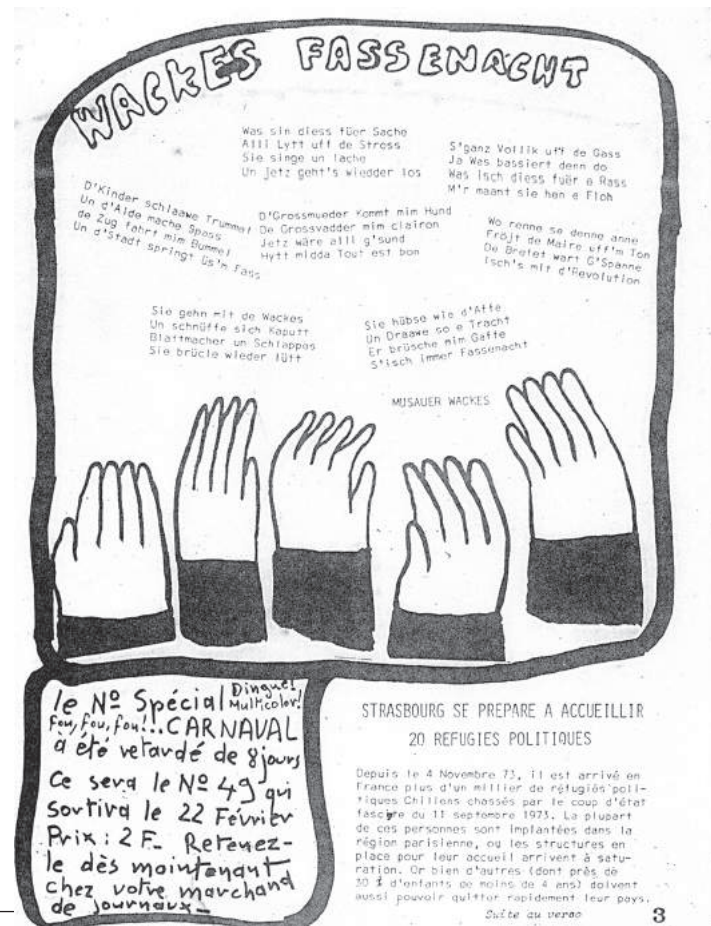 WACKES FASSENACHT
Was sin diess füer Sache
Alli Lytt uff de Stross
Sie singe un lache
Un jetz geht's wiedder los
S'ganz Vollik uff de Gass
Ja Was bassiert denn do
Was isch diess füer e Rass
M'r maant sie hen e Floh
D'Kinder schlaawe Trummel
Un d'Alde mache Spass
de Zug fahrt mim Bummel
Un d'Stadt springt üs'm Fass
D'Grossmueder Kommt mim Hund
De Grossvadder mim clairon
Jetz wäre alli g'sund
Hytt midda Tout est bon
Wo renne se denne anne
Fröjt de Maire uff'm Ton
De Bretet wart G'Spanne
Isch's mit d'Revolution
Sie gehn mit de Wackes
Un schnüffe sich Kaputt
Blattmacher un Schlappos
Sie brücle wieder lütt
Sie hübse wie d'Affe
Un Draawe so e Tracht
Er brüsche mim Gaffe
S'isch immer Fassenacht
MUSAUER WACKES
le Nº Spécial Dingue!
Multicolor!
Fou, fou, fou!... CARNAVAL
a été retardé de 8 jours
Ce sera le Nº 49 qui
sortira le 22 Février
Prix : 2 F_ Retenez-
le dès maintenant
chez votre marchand
de journaux_
STRASBOURG SE PREPARE A ACCUEILLIR
20 REFUGIES POLITIQUES
Depuis le 4 Novembre 73, il est arrivé en
France plus d'un millier de réfugiés poli-
tiques Chiliens chassés par le coup d'état
fasciste du 11 septembre 1973. La plupart
de ces personnes sont implantées dans la
région parisienne, ou les structures en
place pour leur accueil arrivent à satu-
ration. Or bien d'autres (dont près de
30 % d'enfants de moins de 4 ans) doivent
aussi pouvoir quitter rapidement leur pays.
Suite au verso
3